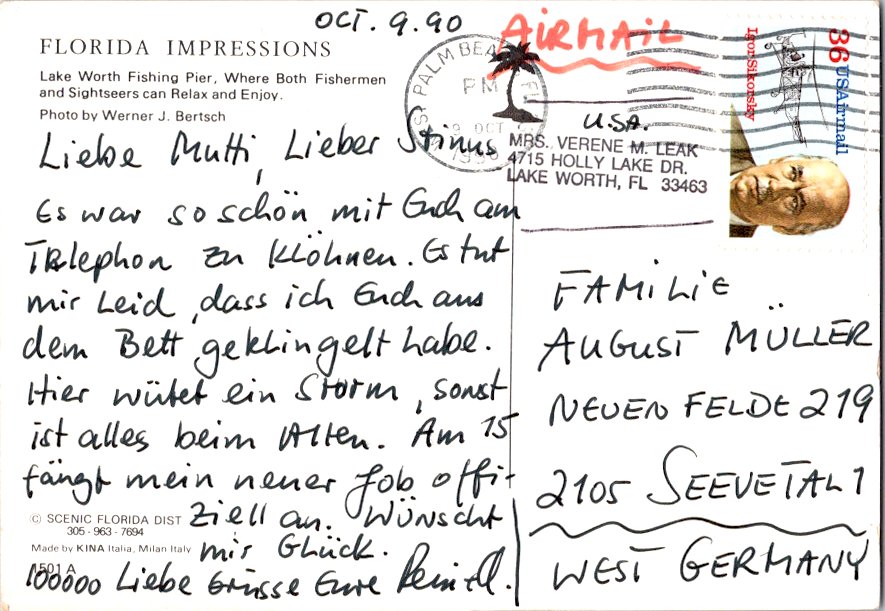 OCT. 9.90
AIRMAIL
FLORIDA IMPRESSIONS
Lake Worth Fishing Pier, Where Both Fishermen
and Sightseers can Relax and Enjoy.
Photo by Werner J. Bertsch
Liebe Mutti, Lieber Stinus
Es war so schön mit Euch am
Telephon zu Klöhnen. Es tut
mir Leid, dass ich Euch aus
dem Bett geklingelt habe.
Hier wütet ein Storm, sonst
ist alles beim Alten. Am 15
fängt mein neuer Job offi-
ziell an. Wünscht
mir Glück.
100000 Liebe Grüsse Eure
© SCENIC FLORIDA DIST
305-963-7694
Made by KINA Italia, Milan Italy
1501 A
WEST PALM BEACH FL
PM
9 OCT
1990
36 USAirmail
Igor Sikorsky
U.S.A.
MRS. VERENE M. LEAK
4715 HOLLY LAKE DR.
LAKE WORTH, FL 33463
FAMILIE
AUGUST MÜLLER
NEUENFELDE 219
2105 SEEVETAL 1
WEST GERMANY